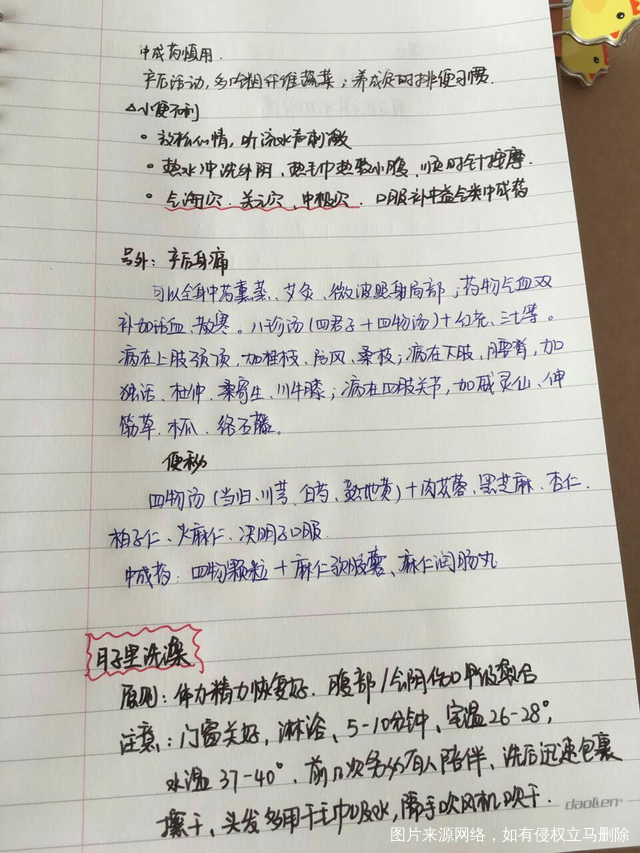 中成药慎用.
产后活动,多吃粗纤维蔬菜;养成定时排便习惯.
△小便不利
• 放松心情,听流水声刺激
• 热水冲洗外阴、热毛巾热敷小腹、顺时针按摩.
• 气海穴、关元穴、中极穴. 口服补中益气类中成药
号外:产后身痛
可以全身中药熏蒸、艾灸、微波照射局部;药物气血双
补加活血、散寒。八诊汤(四君子+四物汤)+红花、三七等。
病在上肢颈项,加桂枝、防风、桑枝;病在下肢、腰脊,加
独活、杜仲、桑寄生、川牛膝;病在四肢关节,加威灵仙、伸
筋草、木瓜、络石藤。
便秘
四物汤(当归、川芎、白芍、熟地黄)+肉苁蓉、黑芝麻、杏仁、
柏子仁、火麻仁、决明子口服.
中成药:四物颗粒+麻仁软胶囊、麻仁润肠丸
月子里洗澡
原则:体力精力恢复好. 腹部/会阴伤口甲级愈合
注意:门窗关好,淋浴、5-10分钟、室温26-28°,
水温37-40°. 前几次务必有人陪伴、洗后迅速包裹
擦干、头发多用干毛巾吸水,随手吹风机吹干.
daolien
图片来源网络,如有侵权立马删除